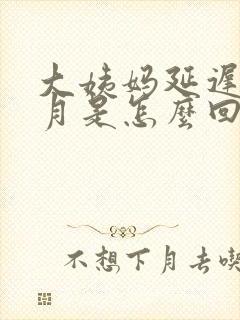 大姨妈延遲
月是怎麼回
不想下月去喫